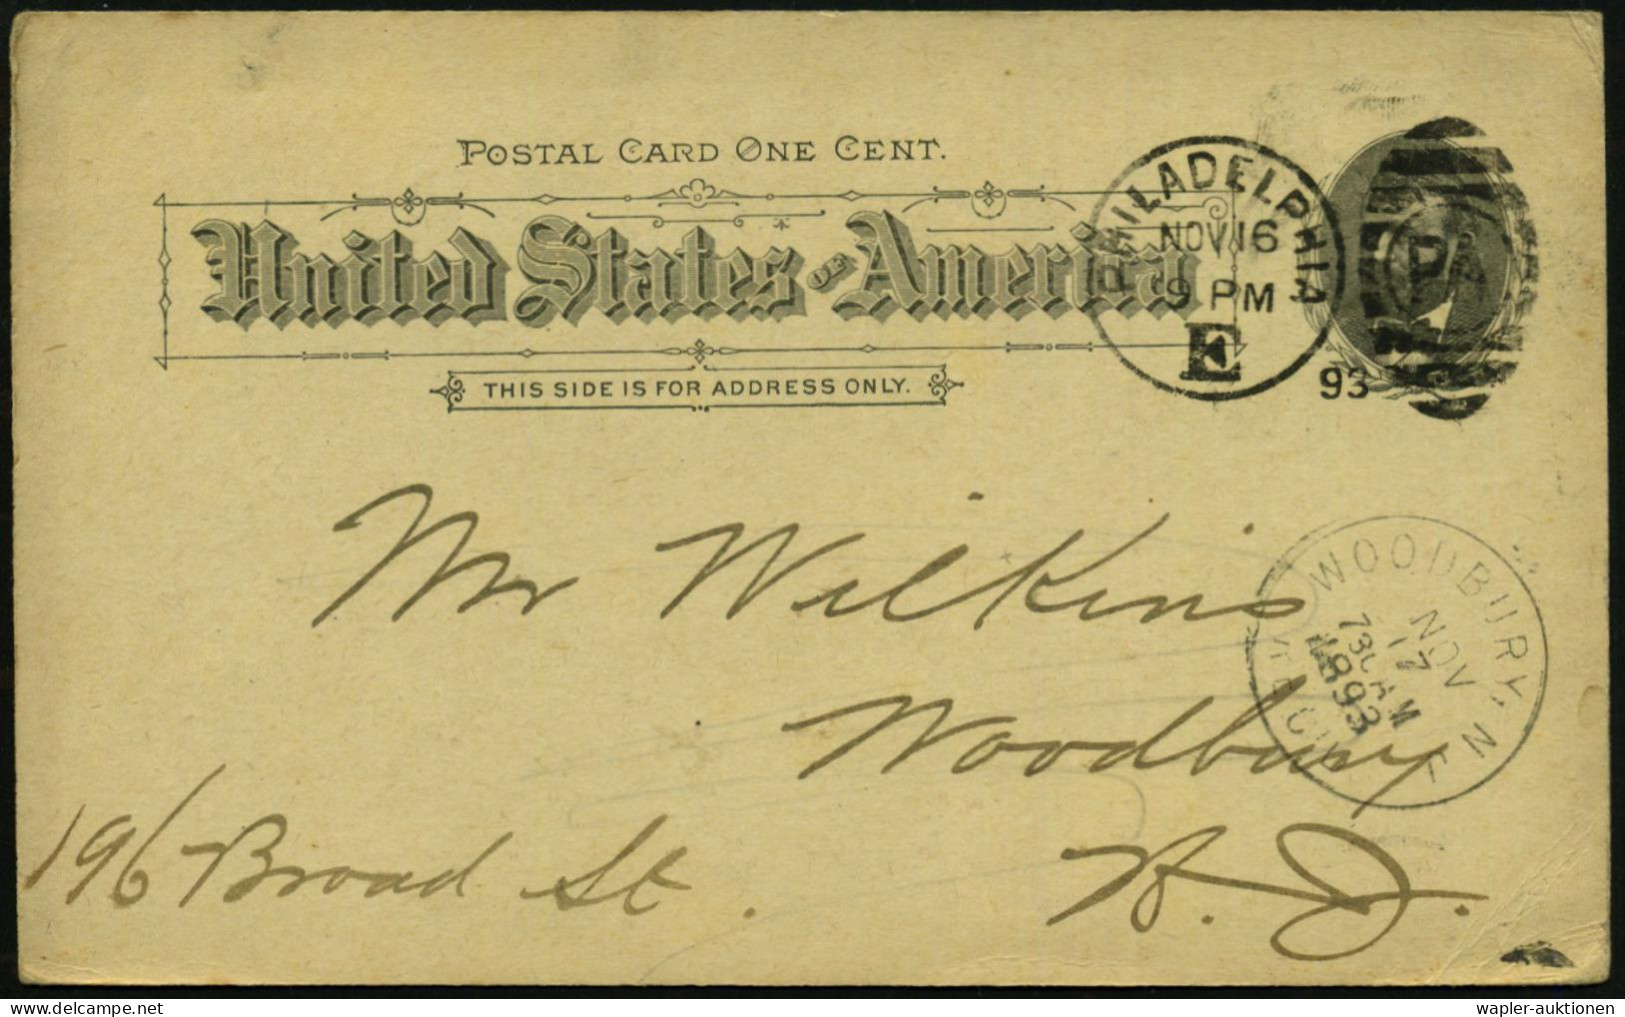 POSTAL CARD ONE CENT.
United States OF America
THIS SIDE IS FOR ADDRESS ONLY.
PHILADELPHIA
NOV 16
9 PM
E
93
PA
Mr Wilkins
Woodbury
N. J.
196 Broad St.
WOODBURY, N J
NOV
17
730 AM
1893
REC'D
wapler-auktionen